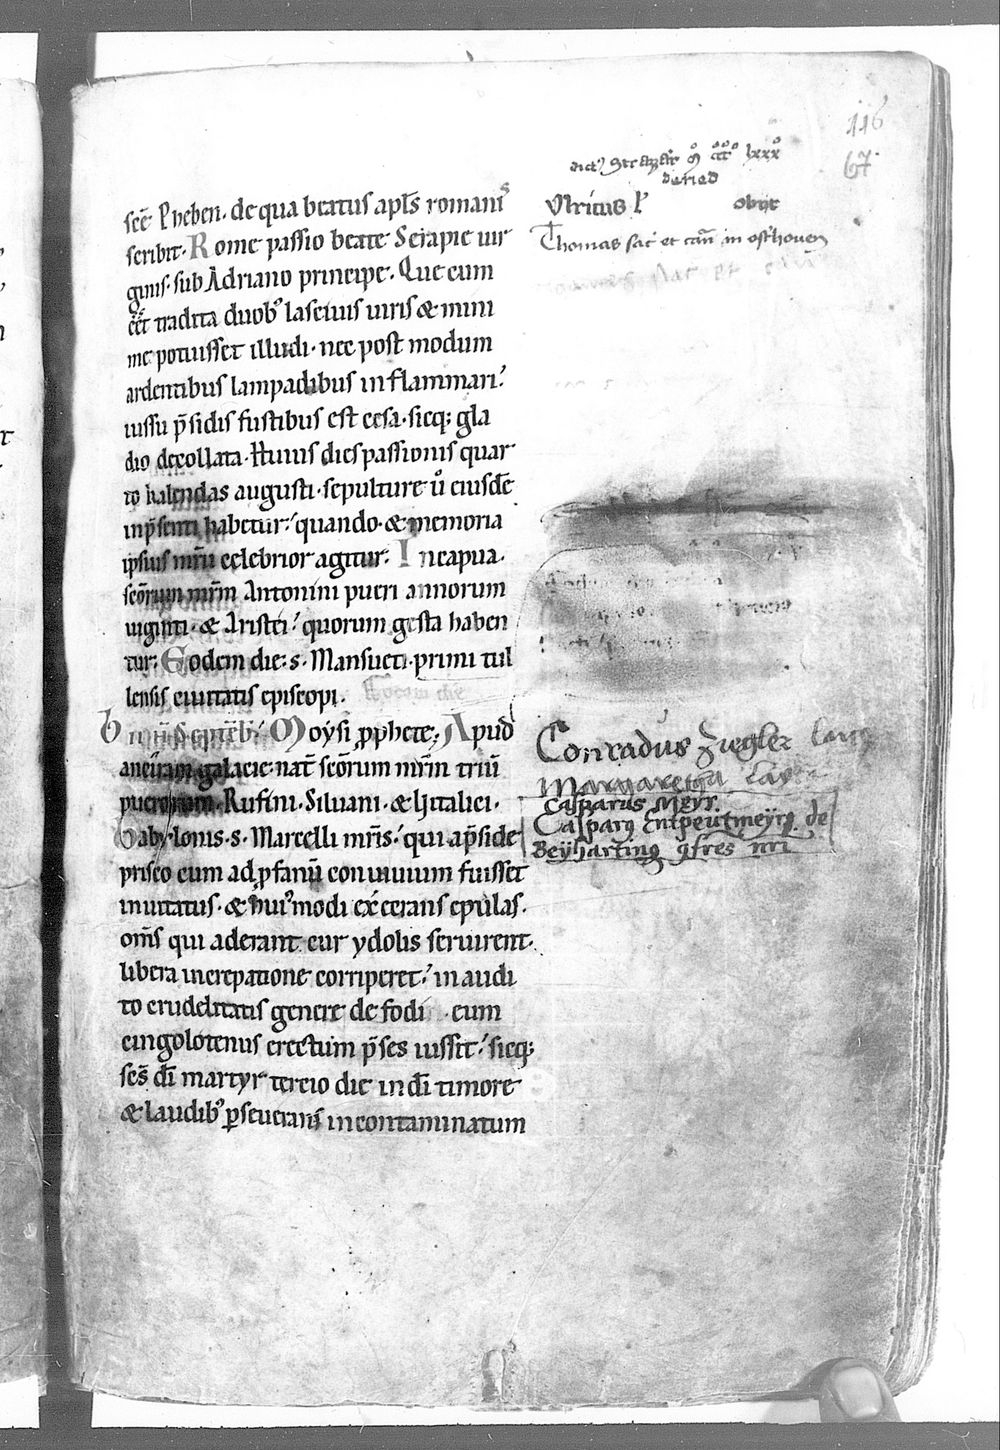 116
67
sc̄e Pheben. de qua beatus apl̄s romanis
scribit. Rome passio beate Serapie uir
ginis. sub Adriano principe. Que cum
eēt tradita duobꝰ lasciuis uiris & mini
me potuisset illudi. nec post modum
ardentibus lampadibus inflammari.
iussu p̄sidis fustibus est cesa. sicq; gla
dio decollata. Huius dies passionis quar
to kalendas augusti. sepulture ů eiusdē
in p̄senti habetur. quando & memoria
ipsius mr̄ii celebrior agitur. In capua.
sc̄orum mr̄m Antonini pueri annorum
uiginti. & Aristei. quorum gesta haben
tur. Eodem die. s. Mansueti. primi tul
lensis ciuitatis episcopi.
Septēb. Moysi ꝓphete; Apud
anciram galacie. nat̄ sc̄orum mr̄m triū
puerorum. Rufini. Siluani. & Hitalici.
Babylonis. s. Marcelli mr̄is. qui ap̄side
prisco cum ad ꝓfanū conuiuium fuisset
inuitatus. & huiꝰmodi exēcrans epulas.
om̄s qui aderant cur ydolis seruirent.
libera increpatione corriperet. inaudi
to crudelitatis genere defodi eum
cingolotenus erectum p̄ses iussit. sicq;
sc̄s dī martyr tercio die in dī timore
& laudibꝰ ꝑseuerans incontaminatum
Vlricus P obijt
Thomas sac̄ et can̄ in osthouen
Conradus Ziegler
Margaretha
Casparus Meyr.
Casparꝯ de
Beyharting ꝯfres nr̄i